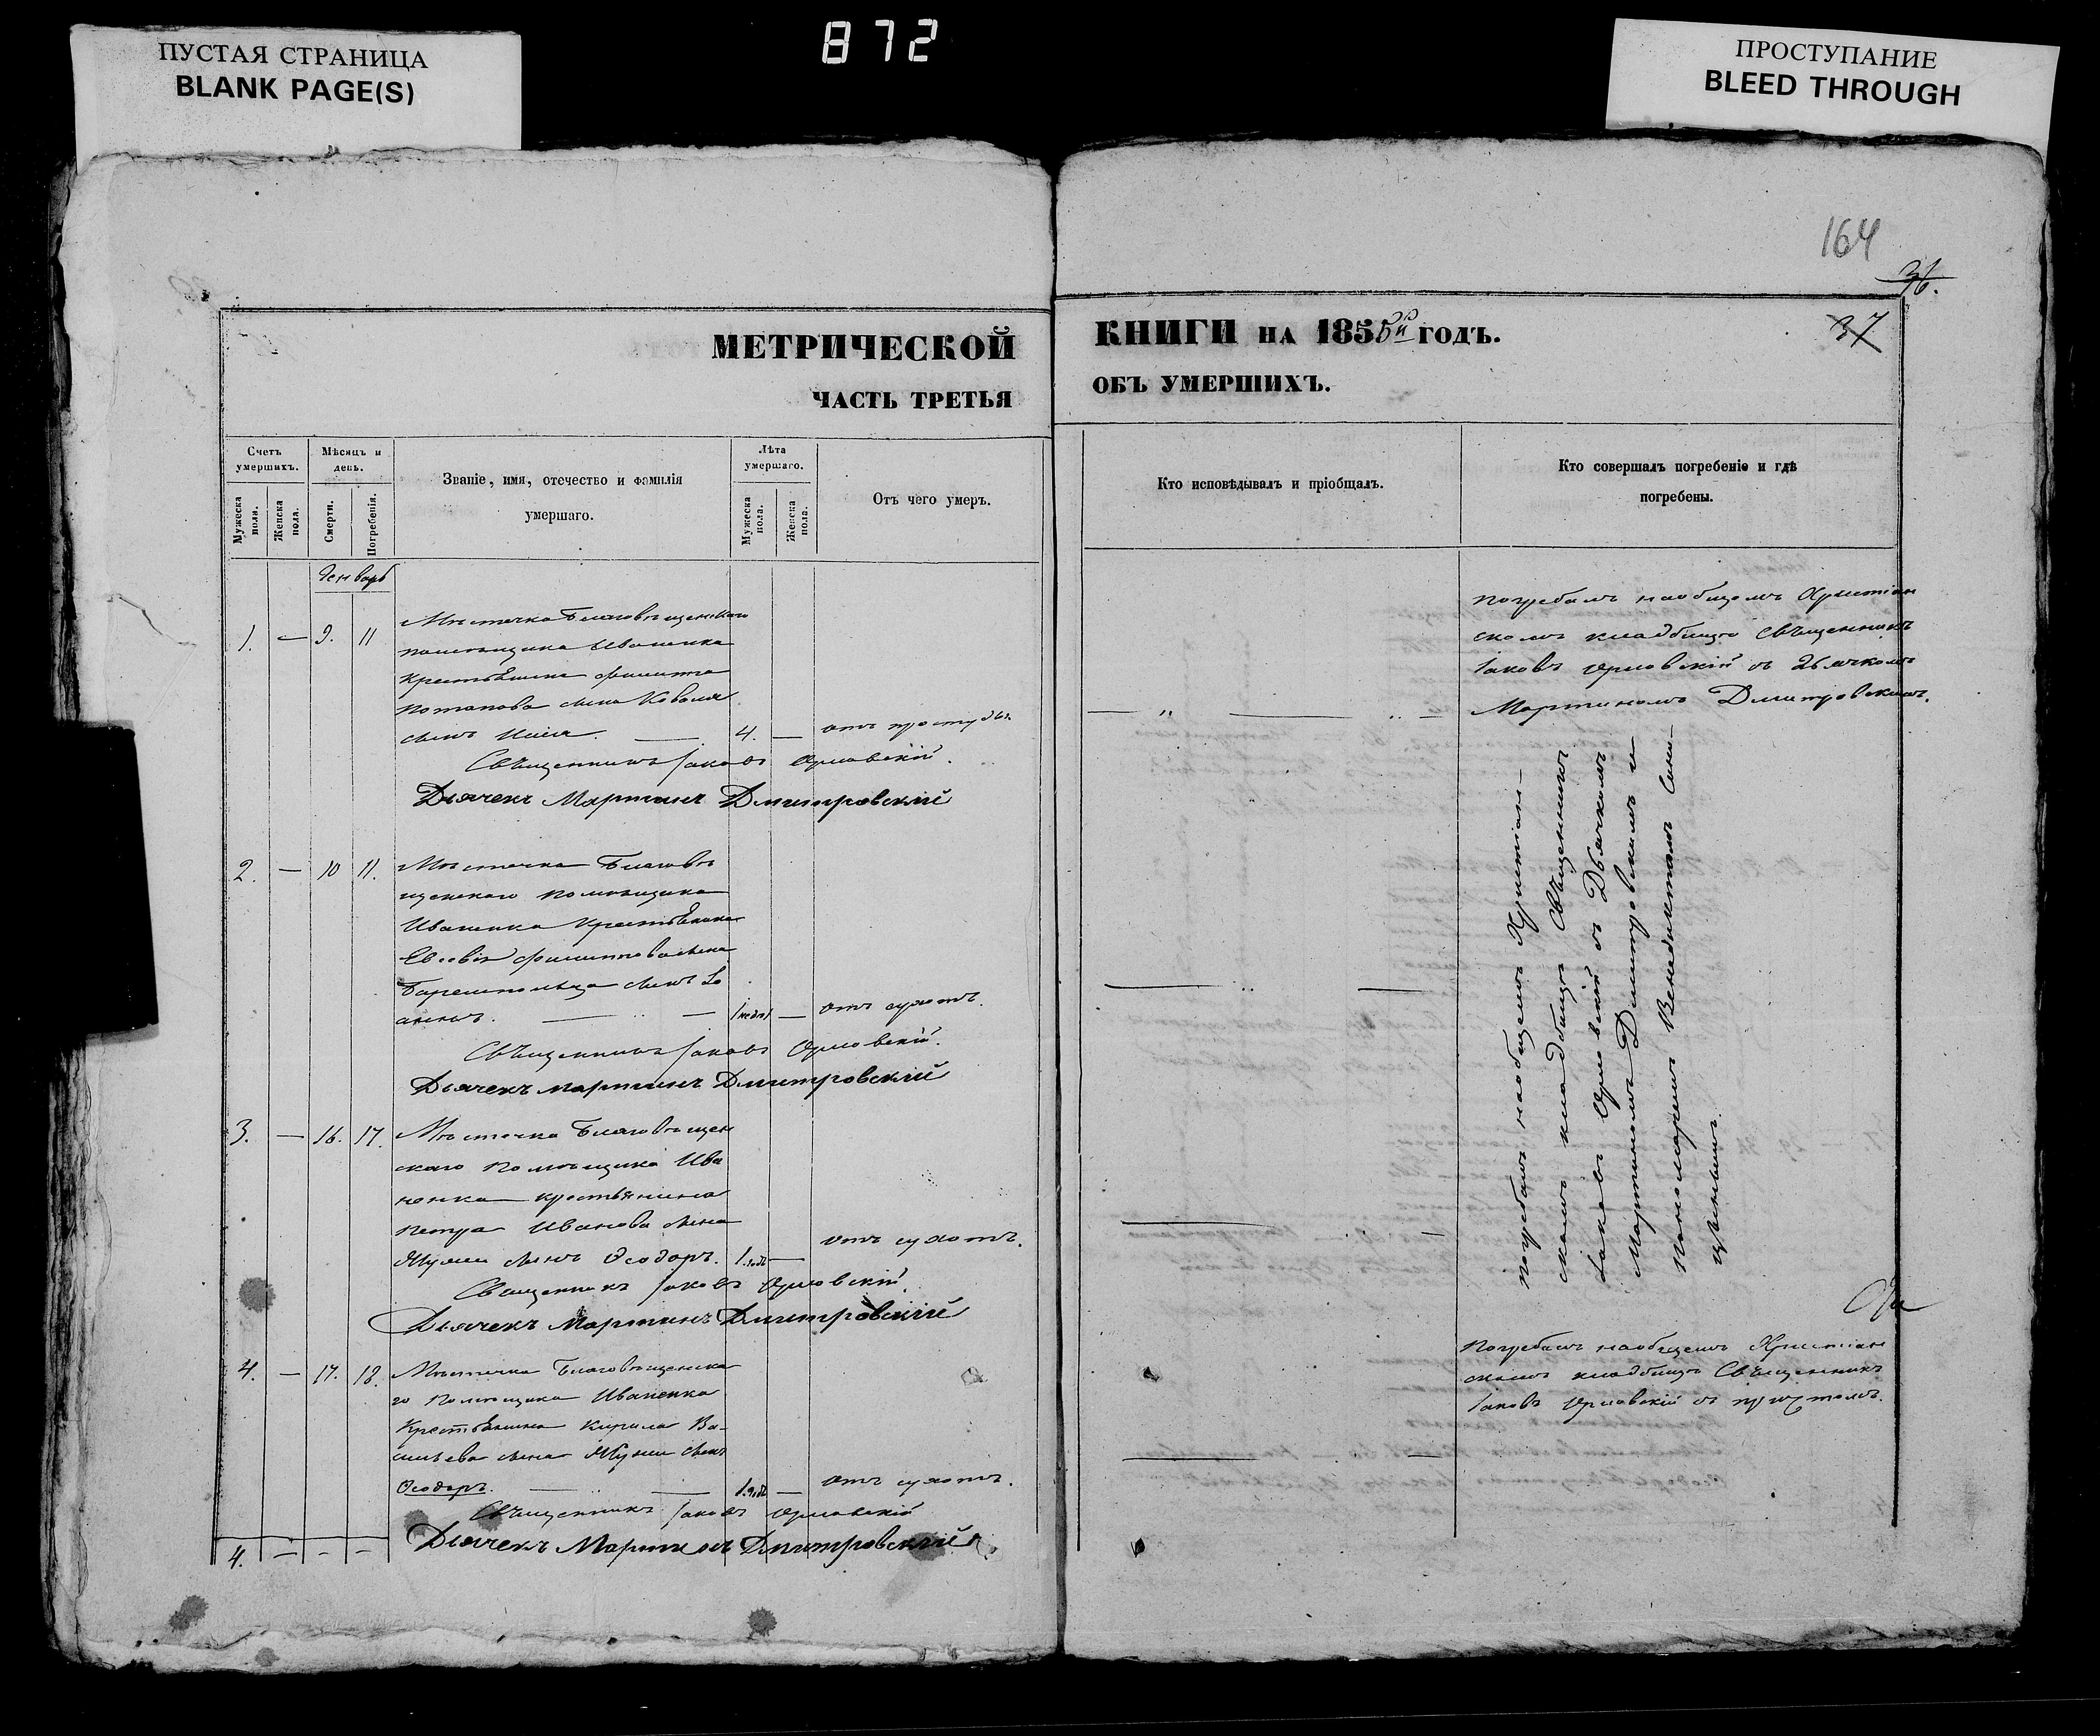 ПУСТАЯ СТРАНИЦА
BLANK PAGE(S)
872
ПРОСТУПАНИЕ
BLEED THROUGH
164
36.
37
МЕТРИЧЕСКОЙ
ЧАСТЬ ТРЕТЬЯ
КНИГИ НА 1855й ГОДЪ.
ОБЪ УМЕРШИХЪ.
Счетъ умершихъ.
Мужеска пола.
Женска пола.
Мѣсяцъ и день.
Смерти.
Погребенія.
Званіе, имя, отечество и фамилія
умершаго.
Лѣта умершаго.
Мужеска пола.
Женска пола.
Отъ чего умеръ.
Кто исповѣдывалъ и пріобщалъ.
Кто совершалъ погребеніе и гдѣ
погребены.
Генварь
1. — 9. 11
Мѣстечка Благовѣщенскаго
помѣщика Иваненка
крестьянина Филиппа
Потапова сына Коваля
сынъ Илія. — 4. — отъ простуды.
Священникъ Іаковъ Орловскій.
Дьячекъ Мартинъ Дмитровскій
2. — 10 11.
Мѣстечка Благовѣ
щенскаго помѣщика
Иваненка крестьянина
Евсевія Филиппова сына
сынъ Іо
аннъ. — 1 недѣл — отъ сухотъ.
Священникъ Іаковъ Орловскій.
Дьячекъ Мартинъ Дмитровскій
3. — 16. 17.
Мѣстечка Благовѣщен
скаго помѣщика Ива
ненка крестьянина
Петра Иванова сына
сынъ Ѳеодоръ. 1. годъ — отъ сухотъ.
Священникъ Іаковъ Орловскій.
Дьячекъ Мартинъ Дмитровскій
4. — 17. 18.
Мѣстечка Благовѣщенска
го помѣщика Иваненка
крестьянина Кирила Ва-
сильева сына сынъ
Ѳеодоръ. — 1. годъ — отъ сухотъ.
Священникъ Іаковъ Орловскій
Дьячекъ Мартинъ Дмитровскій
4. — — —
Погребалъ на общемъ Христіан
скомъ кладбищѣ Священникъ
Іаковъ Орловскій съ дьячкомъ
Мартиномъ Дмитровскимъ.
Погребалъ на общемъ Христіан-
скомъ кладбищѣ Священникъ
Іаковъ Орловскій съ Дьячкомъ
Мартиномъ Дмитровскимъ и
Пономаремъ Венедиктомъ
Погребалъ на общемъ Христіан
скомъ кладбищѣ Священникъ
Іаковъ Орловскій съ причтомъ.